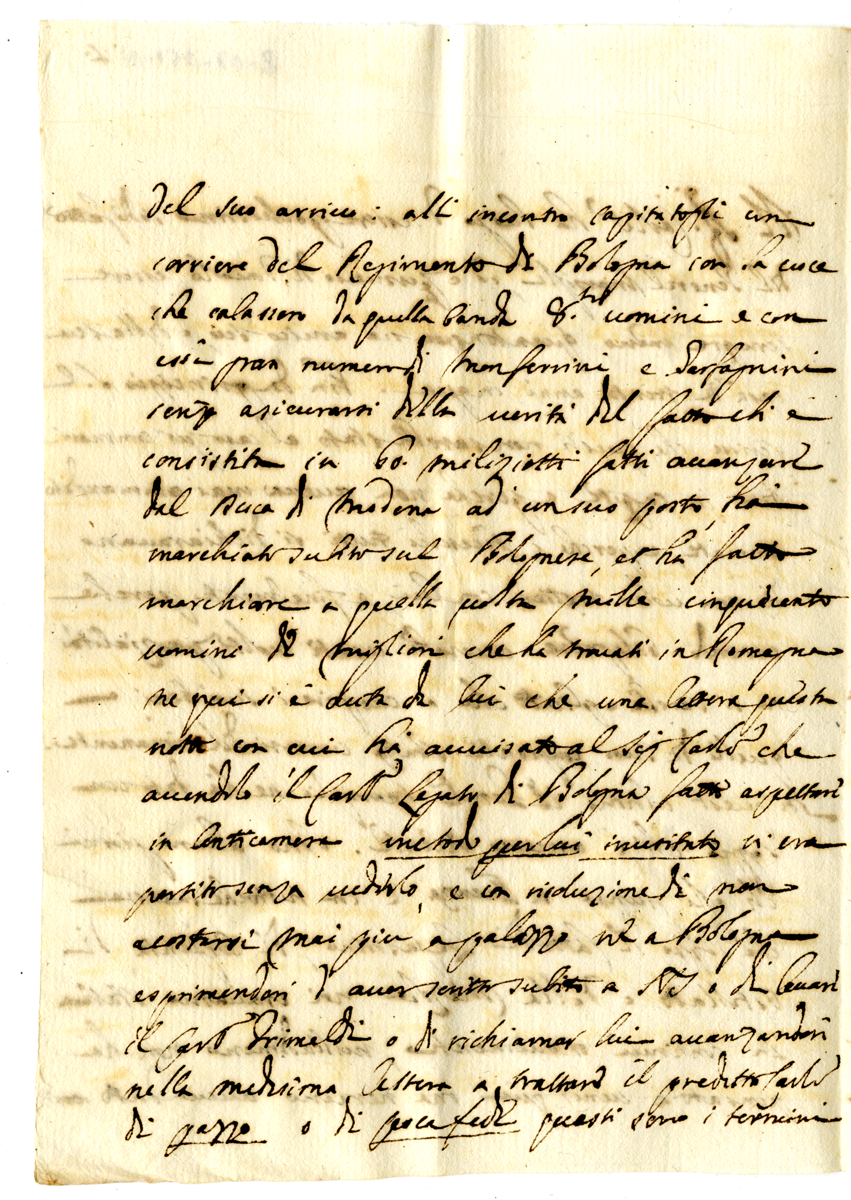 del suo arriuo: all'incontro capitatogli un
corriere del Regimento di Bologna con la uoce
che calassero da quella banda 8.m uomini e con
essi gran numero di Monferrini e Garfagnini
senza asicurarsi della uerità del fatto che è
consistita in 60. miliziotti fatti auanzare
dal Duca di Modena ad un suo posto, ha
marchiato subito sul Bolognese, et ha fatto
marchiare a quella uolta mille cinquecento
uomini de migliori che ha trouati in Romagna
ne qui si è auta da lui che una lettera questa
notte con cui ha auuisato al Sig Card.e che
auendolo il Card.e Legato di Bologna fatto aspettare
in Anticamera metodo per lui inusitato si era
partito senza uederlo, e con risoluzione di non
acostarsi mai piu a palazzo nè a Bologna
esprimendosi d'auer scritto subito a NS o di leuare
il Card.e Grimaldi o di richiamar lui auanzandosi
nella medesima lettera a trattare il predetto Card.e
di pazzo o di poca fede questi sono i termini